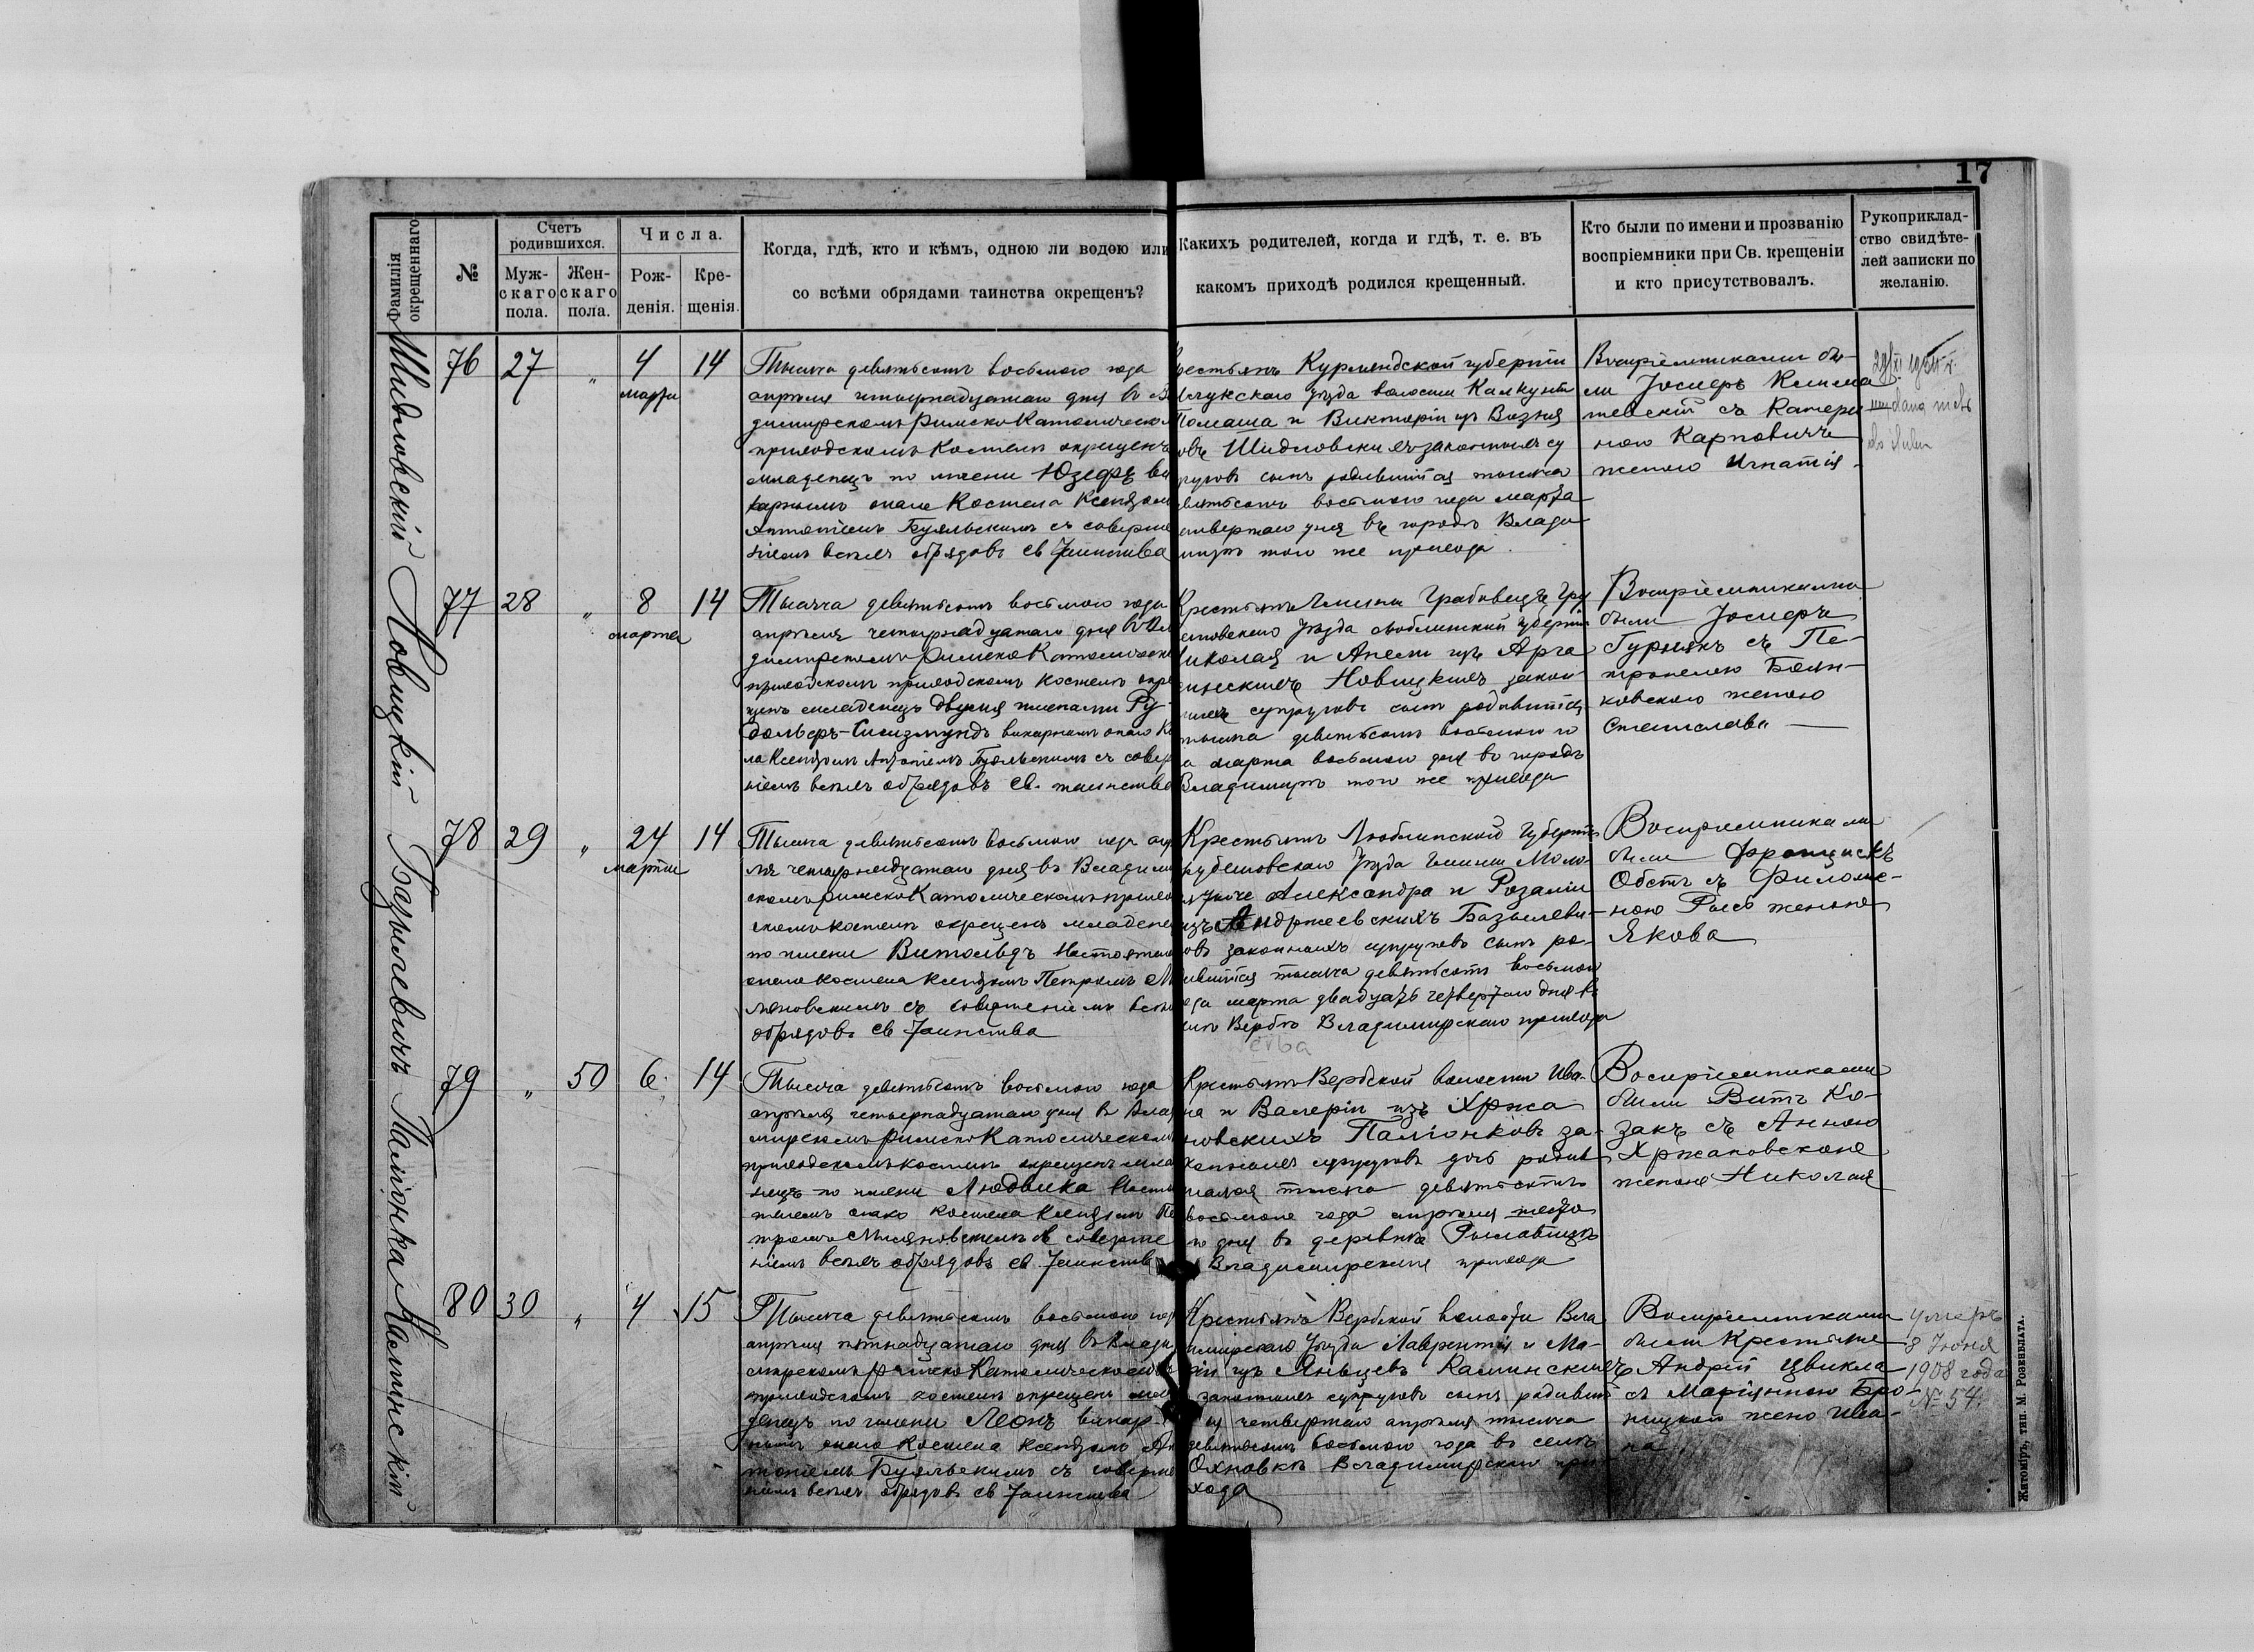 17
Фамилія окрещеннаго
№
Счетъ родившихся.
Муж-
скаго
пола.
Жен-
скаго
пола.
Числа.
Рож-
денія.
Кре-
щенія.
Когда, гдѣ, кто и кѣмъ, одною ли водою или
со всѣми обрядами таинства окрещенъ?
Какихъ родителей, когда и гдѣ, т. е. въ
какомъ приходѣ родился крещенный.
Кто были по имени и прозванію
воспріемники при Св. крещеніи
и кто присутствовалъ.
Рукоприклад-
ство свидѣте-
лей записки по
желанію.
Шидловскій
76
27
"
4
марта
14
Тысяча девятьсотъ восьмого года
апрѣля четырнадцатаго дня въ
димирскомъ Римско Католическо
приходскомъ Костелѣ окрещенъ
младенецъ по имени Юзефъ ви
карнымъ онаго Костела Ксендзом
Антоніемъ Буяльскимъ съ соверше
ніемъ всѣхъ обрядовъ св Таинства
рестьянъ Курляндской губерніи
уѣзда волости Калкунъ
Томаша и Викторіи изъ Возня
овъ Шидловскихъ законныхъ су
руговъ сынъ родившійся тысяча
девятьсотъ восьмого года марта
четвертаго дня въ городѣ Влади
мирѣ того же прихода.
Воспріемниками бы-
ли Іосифъ
съ Катери
ною Карповичъ
женою Игнатія
Новицкій
77
28
"
8
марта
14
Тысяча девятьсотъ восьмого года
апрѣля четырнадцатаго дня въ Вла
димирскомъ Римско Католическо
приходскомъ приходскомъ костелѣ окре
щенъ младенецъ двумя именами Ру-
дольфъ-Сигизмундъ викарнымъ онаго Ко
ла Ксендзомъ Антоніемъ Буяльскимъ съ совер
ніемъ всѣхъ обрядовъ св. таинства
Крестьянъ Гмины Грабовецъ Гру
бешовскаго уѣзда Люблинской губерніи
Николая и Анели изъ Арга
синскихъ Новицкихъ закон
ныхъ супруговъ сынъ родившійся
тысяча девятьсотъ восьмого го
а марта восьмого дня въ городѣ
Владимирѣ того же прихода
Воспріемниками
были Іосифъ
Гурнякъ съ Пе-
тронелею Боян-
ковскою женою
Станислава
Базылевичъ
78
29
"
24
марта
14
Тысяча девятьсотъ восьмого года апр
ля четырнадцатаго дня въ Владими
скомъ Римско Католическомъ прихо
скомъ костелѣ окрещенъ младене
по имени Витольдъ Настоятел
онаго костела Ксендзомъ Петромъ М
съ совершеніемъ всѣх
обрядовъ св Таинства
Крестьянъ Люблинской Губерніи
рубешовскаго уѣзда Гмины Моло-
Александра и Розаліи
изъ Андржеевскихъ Базылеви-
овъ законныхъ супруговъ сынъ ро-
дившійся тысяча девятьсотъ восьмого
ода марта двадцать четвертаго дня въ
Вербѣ Владимирскаго прихода
Воспріемниками
были Францискъ
Обстъ съ Филоме-
ною Рысь женою
Якова
Паліонка
79
"
50
6
"
14
Тысяча девятьсотъ восьмого года
апрѣля четырнадцатаго дня въ Влад
мирскомъ Римско Католическомъ
приходскомъ костелѣ окрещенъ мла
нецъ по имени Людвика Насто
телемъ онаго костела Ксендзомъ Пе
тромъ съ соверше
ніемъ всѣхъ обрядовъ св Таинств
Крестьянъ Вербской волости Ива-
на и Валеріи изъ Хржа
новскихъ Паліонковъ за-
конныхъ супруговъ дочь родив
шаяся тысяча девятьсотъ
восьмого года апрѣля шесто
го дня въ деревнѣ
Владимирскаго прихода
Воспріемниками
были Витъ Ко-
закъ съ Анною
Хржановскою
женою Николая
Калинскій
80
30
"
4
15
Тысяча девятьсотъ восьмого год
апрѣля пятнадцатаго дня въ Влади
мирскомъ Римско Католическомъ
приходскомъ костелѣ окрещенъ мла
денецъ по имени Леонъ викар-
нымъ онаго Костела Ксендзомъ Ан
тоніемъ Буяльскимъ съ соверше
ніемъ всѣхъ обрядовъ св Таинства
Крестьянъ Вербской волости Вла
димирскаго уѣзда Лаврентія и Ма-
ріи изъ Яньцевъ Калинскихъ
законныхъ супруговъ сынъ родивш
ся четвертаго апрѣля тысяча
девятьсотъ восьмого года въ селѣ
Охновкѣ Владимирскаго при
хода
Воспріемниками
были Крестьяне
Андрій Цвикла
съ Маріянною Бро-
ницкою жено Ива-
на
умеръ
8 Іюня
1908 года
№ 54.
Житоміръ, тип. М. Розенблата.